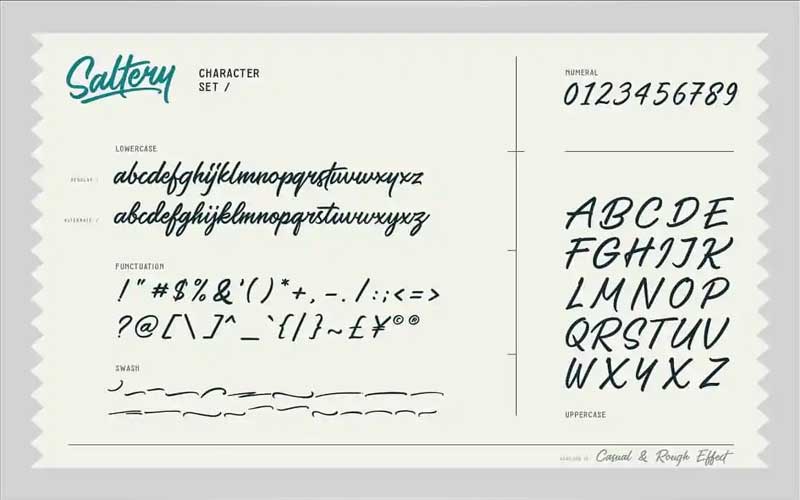 Saltery
CHARACTER
SET /
LOWERCASE
REGULAR /
abcdefghijklmnopqrstuvwxyxz
ALTERNATE /
abcdefghijklmnopqrstuvwxyxz
PUNCTUATION
! " # $ % & ' ( ) * + , - . / : ; < = >
? @ [ \ ] ^ _ ` { | } ~ £ ¥ © ®
SWASH
NUMERAL
0123456789
ABCDE
FGHIJK
LMNOP
QRSTUV
WXYXZ
UPPERCASE
Casual & Rough Effect